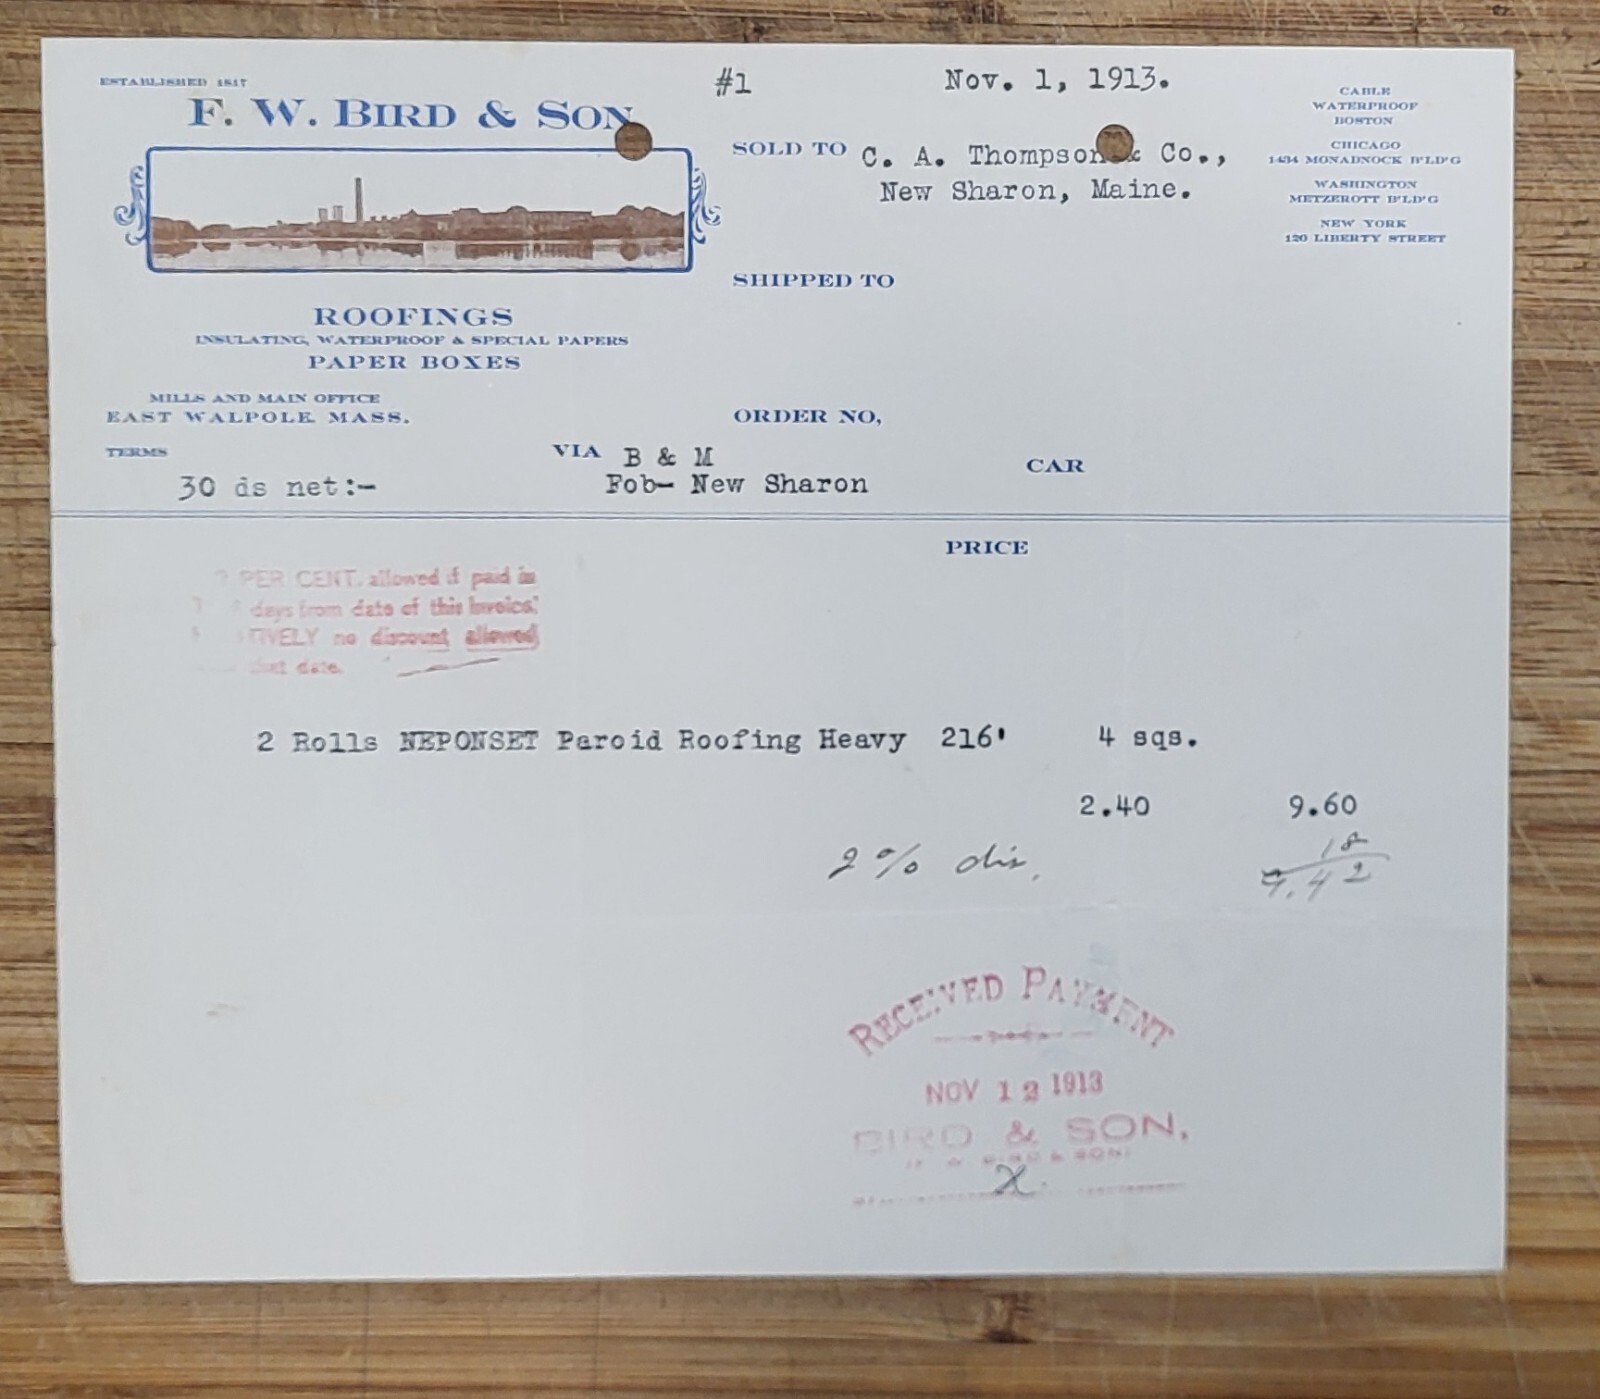 ESTABLISHED 1817
F. W. BIRD & SON
ROOFINGS
INSULATING, WATERPROOF & SPECIAL PAPERS
PAPER BOXES
MILLS AND MAIN OFFICE
EAST WALPOLE, MASS.
TERMS
30 ds net:-
#1
Nov. 1, 1913.
SOLD TO C. A. Thompson & Co.,
New Sharon, Maine.
SHIPPED TO
ORDER NO,
VIA B & M
Fob- New Sharon
CAR
CABLE
WATERPROOF
BOSTON
CHICAGO
1434 MONADNOCK B'LD'G
WASHINGTON
METZEROTT B'LD'G
NEW YORK
120 LIBERTY STREET
PRICE
PER CENT. allowed if paid in
days from date of this invoice.
no discount allowed
that date.
2 Rolls NEPONSET Paroid Roofing Heavy 216' 4 sqs.
2.40 9.60
2% dis. 18
9.42
RECEIVED PAYMENT
NOV 12 1913
BIRD & SON,
X